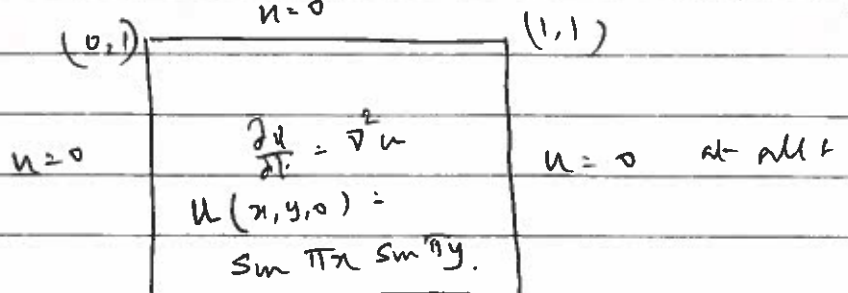 u=0
(0,1) (1,1)
u=0 ∂u/∂t = ∇²u u=0 at all t
u(x,y,0) =
sin πx sin πy.